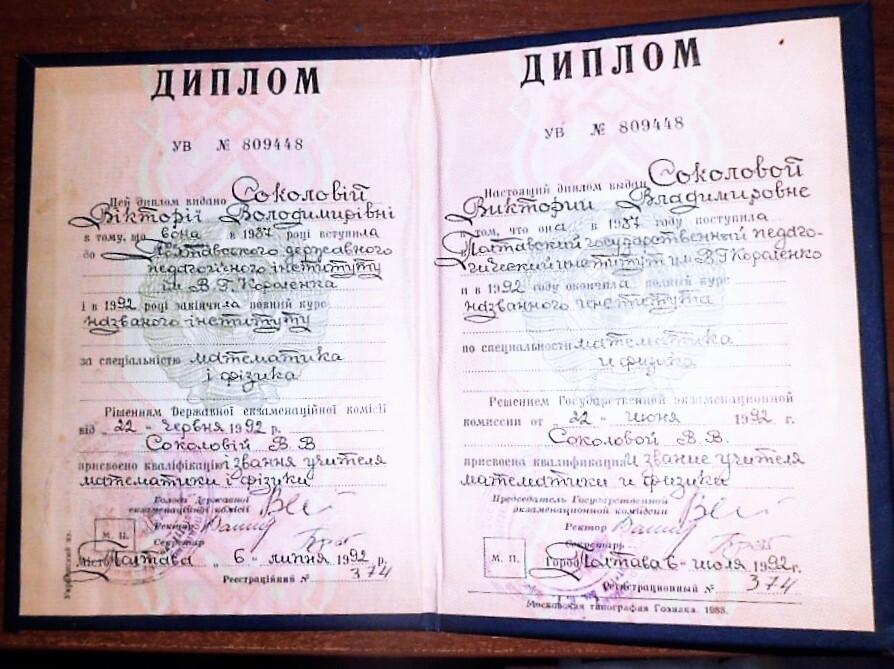 ДИПЛОМ
УВ № 809448
Цей диплом видано Соколовій
Вікторії Володимирівні
в тому, що вона в 1987 році вступила
до Полтавського державного
педагогічного інституту
ім В.Г Короленка
і в 1992 році закінчила повний курс
названого інституту
за спеціальністю математика
і фізика
Рішенням Державної екзаменаційної комісії
від „22" червня 1992 р.
Соколовій В. В
присвоєно кваліфікацію і звання учителя
математики і фізики
Голова Державної
екзаменаційної комісії
Ректор
Секретар
М. П.
Місто Полтава „6" липня 1992 р.
Реєстраційний № 374
ДИПЛОМ
УВ № 809448
Настоящий диплом выдан Соколовой
Виктории Владимировне
том, что она в 1987 году поступила
Полтавский государственный педаго-
гический институт им В Г Короленко
и в 1992 году окончила полный курс
названного института
по специальности математика
и физика
Решением Государственной экзаменационной
комиссии от „22" июня 1992 г.
Соколовой В. В.
присвоена квалификация и звание учителя
математики и физики
Председатель Государственной
экзаменационной комиссии
Ректор
Секретарь
М. П.
Город Полтава 6" июля 1992 г.
Регистрационный № 374
Московская типография Гознака. 1988.